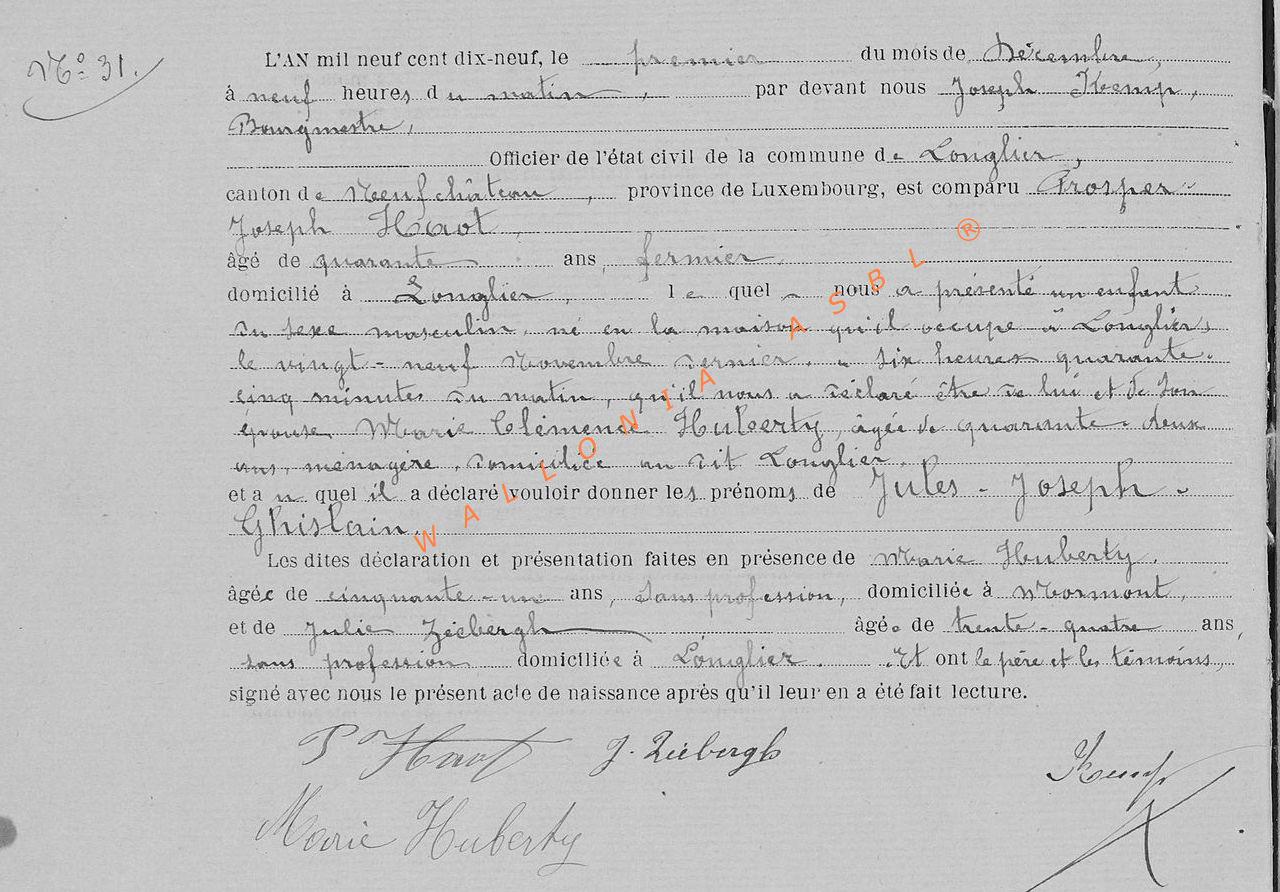 N° 31.
L'AN mil neuf cent dix-neuf, le premier du mois de Décembre,
à neuf heures du matin, par devant nous Joseph Kemp,
Bourgmestre,
Officier de l'état civil de la commune de Longlier,
canton de Neufchâteau, province de Luxembourg, est comparu Prosper-
Joseph Havot,
âgé de quarante ans, fermier,
domicilié à Longlier, lequel nous a présenté un enfant
du sexe masculin, né en la maison qu'il occupe à Longlier,
le vingt-neuf Novembre dernier, à six heures quarante-
cinq minutes du matin, qu'il nous a déclaré être de lui et de son
épouse Marie Clémence Huberty, âgée de quarante-deux
ans, ménagère, domiciliée au dit Longlier,
et auquel il a déclaré vouloir donner les prénoms de Jules-Joseph-
Ghislain.
Les dites déclaration et présentation faites en présence de Marie Huberty,
âgée de cinquante-un ans, sans profession, domiciliée à Mormont,
et de Julie Zéebergh âgée de trente-quatre ans,
sans profession domiciliée à Longlier. Et ont le père et les témoins,
signé avec nous le présent acte de naissance après qu'il leur en a été fait lecture.
P Havot J. Zéebergh Kemp
Marie Huberty
WALLONIA ASBL ®